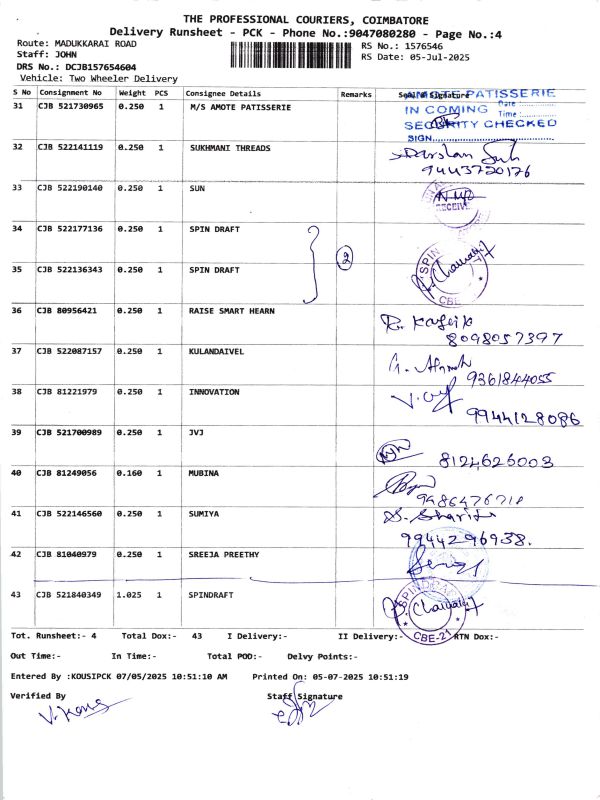 THE PROFESSIONAL COURIERS, COIMBATORE
Delivery Runsheet - PCK - Phone No.:9047080280 - Page No.:4
Route: MADUKKARAI ROAD RS No.: 1576546
Staff: JOHN RS Date: 05-Jul-2025
DRS No.: DCJB157654604
Vehicle: Two Wheeler Delivery
S No Consignment No Weight PCS Consignee Details Remarks Seal & Signature
31 CJB 521730965 0.250 1 M/S AMOTE PATISSERIE
PATISSERIE
IN COMING Date :
Time :
SECURITY CHECKED
SIGN
32 CJB 522141119 0.250 1 SUKHMANI THREADS
9443720176
33 CJB 522190140 0.250 1 SUN
34 CJB 522177136 0.250 1 SPIN DRAFT
2
35 CJB 522136343 0.250 1 SPIN DRAFT
SPIN
CBE
36 CJB 80956421 0.250 1 RAISE SMART HEARN
R. Kartik
8098057397
37 CJB 522087157 0.250 1 KULANDAIVEL
9361844055
38 CJB 81221979 0.250 1 INNOVATION
9944128086
39 CJB 521700989 0.250 1 JVJ
8124626003
40 CJB 81249056 0.160 1 MUBINA
9486476718
41 CJB 522146560 0.250 1 SUMIYA
9944296938.
42 CJB 81040979 0.250 1 SREEJA PREETHY
43 CJB 521840349 1.025 1 SPINDRAFT
CBE-21
Tot. Runsheet:- 4 Total Dox:- 43 I Delivery:- II Delivery:- RTN Dox:-
Out Time:- In Time:- Total POD:- Delvy Points:-
Entered By :KOUSIPCK 07/05/2025 10:51:10 AM Printed On: 05-07-2025 10:51:19
Verified By Staff Signature